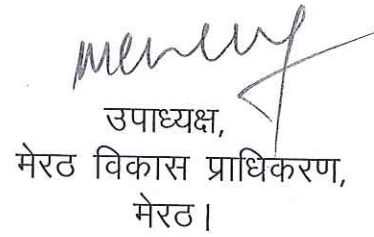 उपाध्यक्ष,
मेरठ विकास प्राधिकरण,
मेरठ।